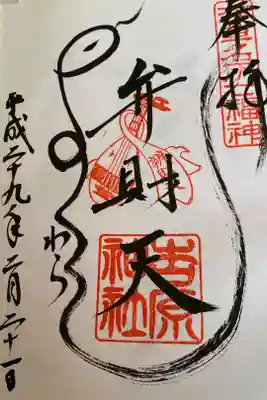 奉拝
弁財天
吉原
神社
わら
平成二十九年二月二十一日